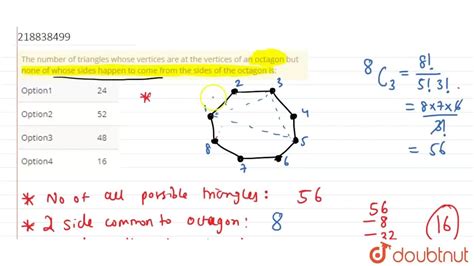 218838499
The number of triangles whose vertices are at the vertices of an octagon but
none of whose sides happen to come from the sides of the octagon is:
Option1 24
Option2 52
Option3 48
Option4 16
*
2 3
4
8 5
7 6
8C3 = 8!
5! 3!
= 8×7×6
3!
= 56
* No of all possible triangles: 56
* 2 side common to octagon: 8
56
-8
-32
16
doubtnut